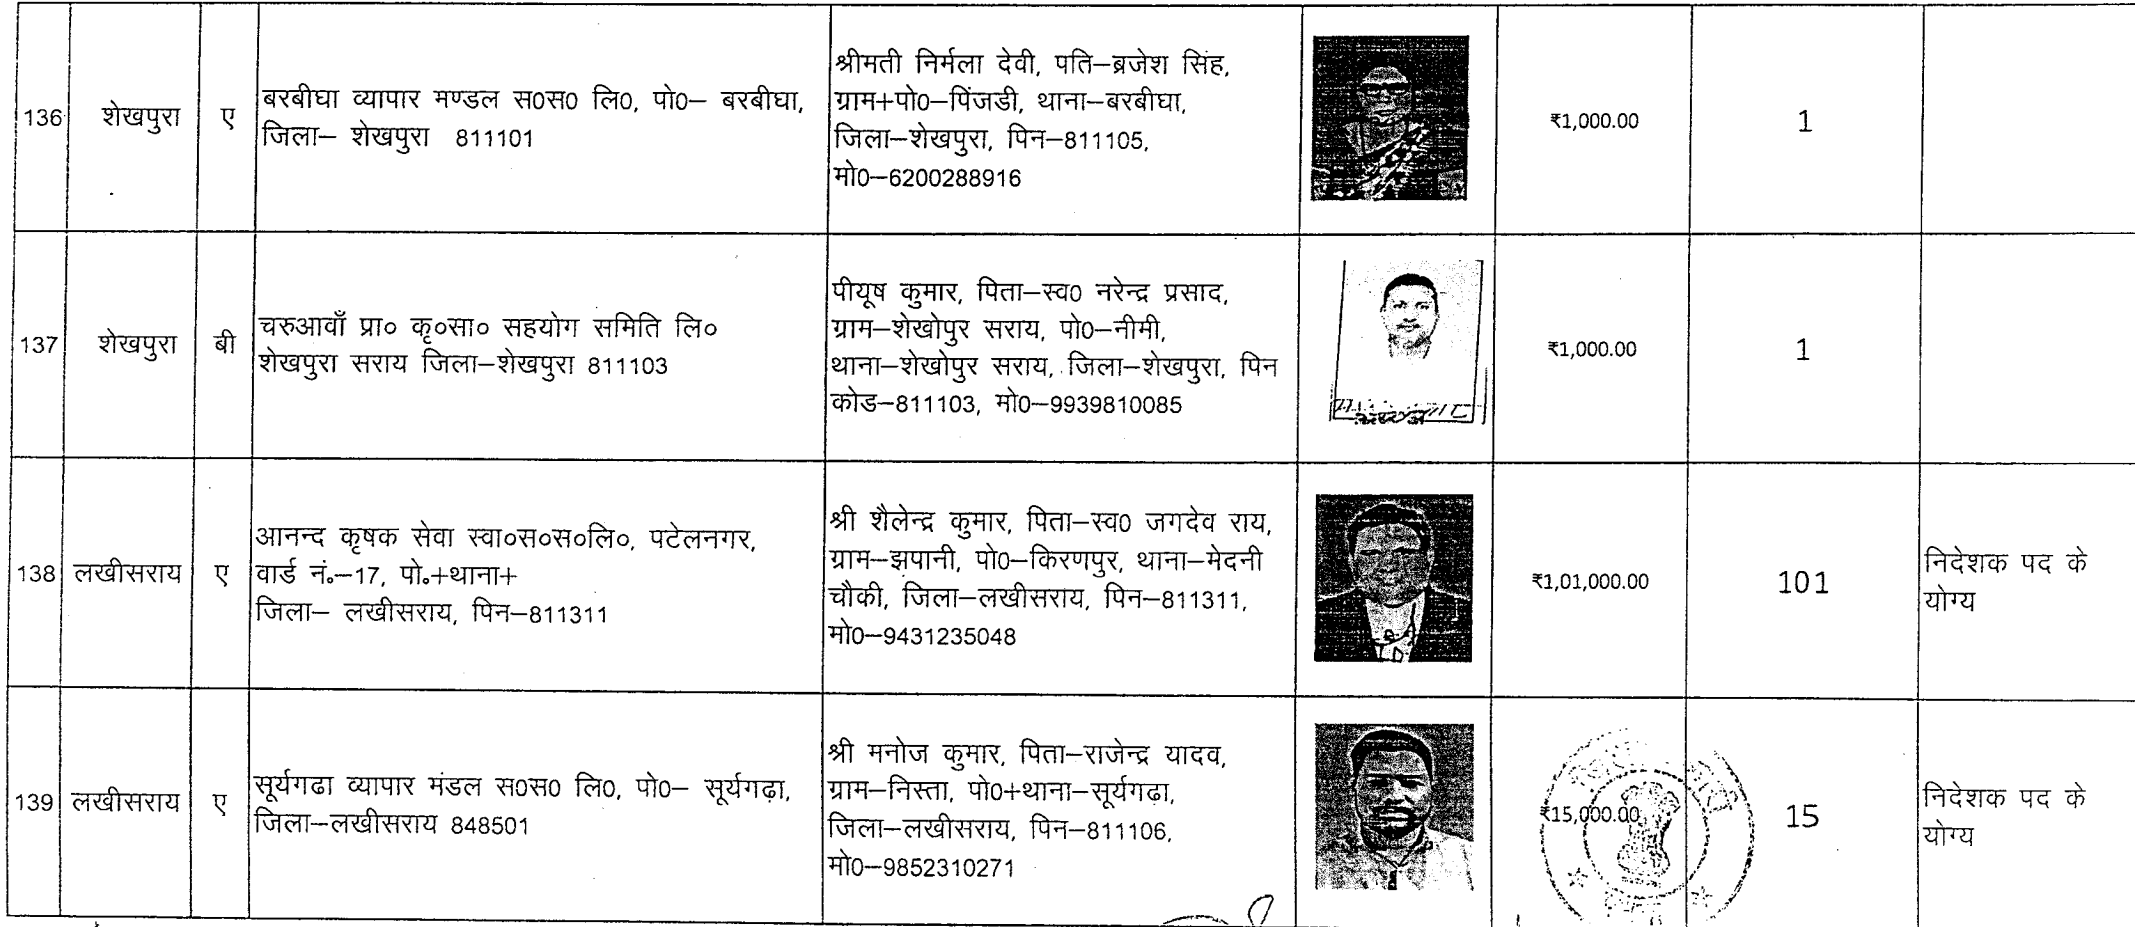 136 शेखपुरा ए
बरबीघा व्यापार मण्डल स0स0 लि0, पो0– बरबीघा,
जिला– शेखपुरा 811101
श्रीमती निर्मला देवी, पति–ब्रजेश सिंह,
ग्राम+पो0–पिंजडी, थाना–बरबीघा,
जिला–शेखपुरा, पिन–811105,
मो0–6200288916
₹1,000.00
1
137 शेखपुरा बी
चरुआवाँ प्रा० कृ०सा० सहयोग समिति लि०
शेखपुरा सराय जिला–शेखपुरा 811103
पीयूष कुमार, पिता–स्व0 नरेन्द्र प्रसाद,
ग्राम–शेखोपुर सराय, पो0–नीमी,
थाना–शेखोपुर सराय, जिला–शेखपुरा, पिन
कोड–811103, मो0–9939810085
₹1,000.00
1
138 लखीसराय ए
आनन्द कृषक सेवा स्वा०स०स०लि०, पटेलनगर,
वार्ड नं०–17, पो०+थाना+
जिला– लखीसराय, पिन–811311
श्री शैलेन्द्र कुमार, पिता–स्व0 जगदेव राय,
ग्राम–झपानी, पो0–किरणपुर, थाना–मेदनी
चौकी, जिला–लखीसराय, पिन–811311,
मो0–9431235048
₹1,01,000.00
101
निदेशक पद के
योग्य
139 लखीसराय ए
सूर्यगढा व्यापार मंडल स0स0 लि0, पो0– सूर्यगढ़ा,
जिला–लखीसराय 848501
श्री मनोज कुमार, पिता–राजेन्द्र यादव,
ग्राम–निस्ता, पो0+थाना–सूर्यगढा,
जिला–लखीसराय, पिन–811106,
मो0–9852310271
₹15,000.00
15
निदेशक पद के
योग्य